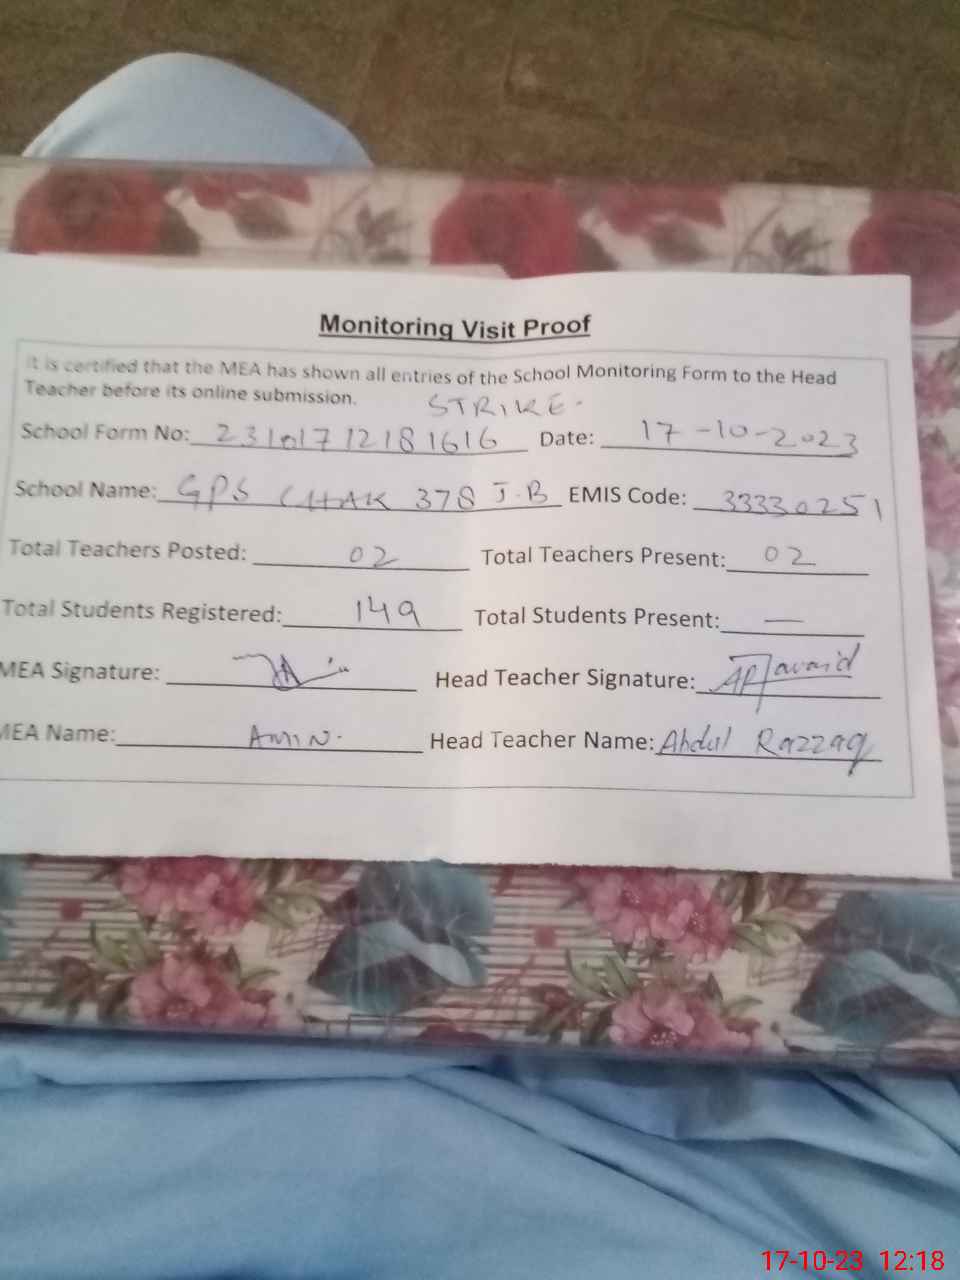 Monitoring Visit Proof
It is certified that the MEA has shown all entries of the School Monitoring Form to the Head
Teacher before its online submission.
STRIKE.
School Form No: 231017 12181616 Date: 17-10-2023
School Name: GPS CHAK 378 J.B EMIS Code: 33330251
Total Teachers Posted: 02 Total Teachers Present: 02
Total Students Registered: 149 Total Students Present: —
MEA Signature: Head Teacher Signature:
MEA Name: AMIN. Head Teacher Name: Abdul Razzaq
17-10-23 12:18